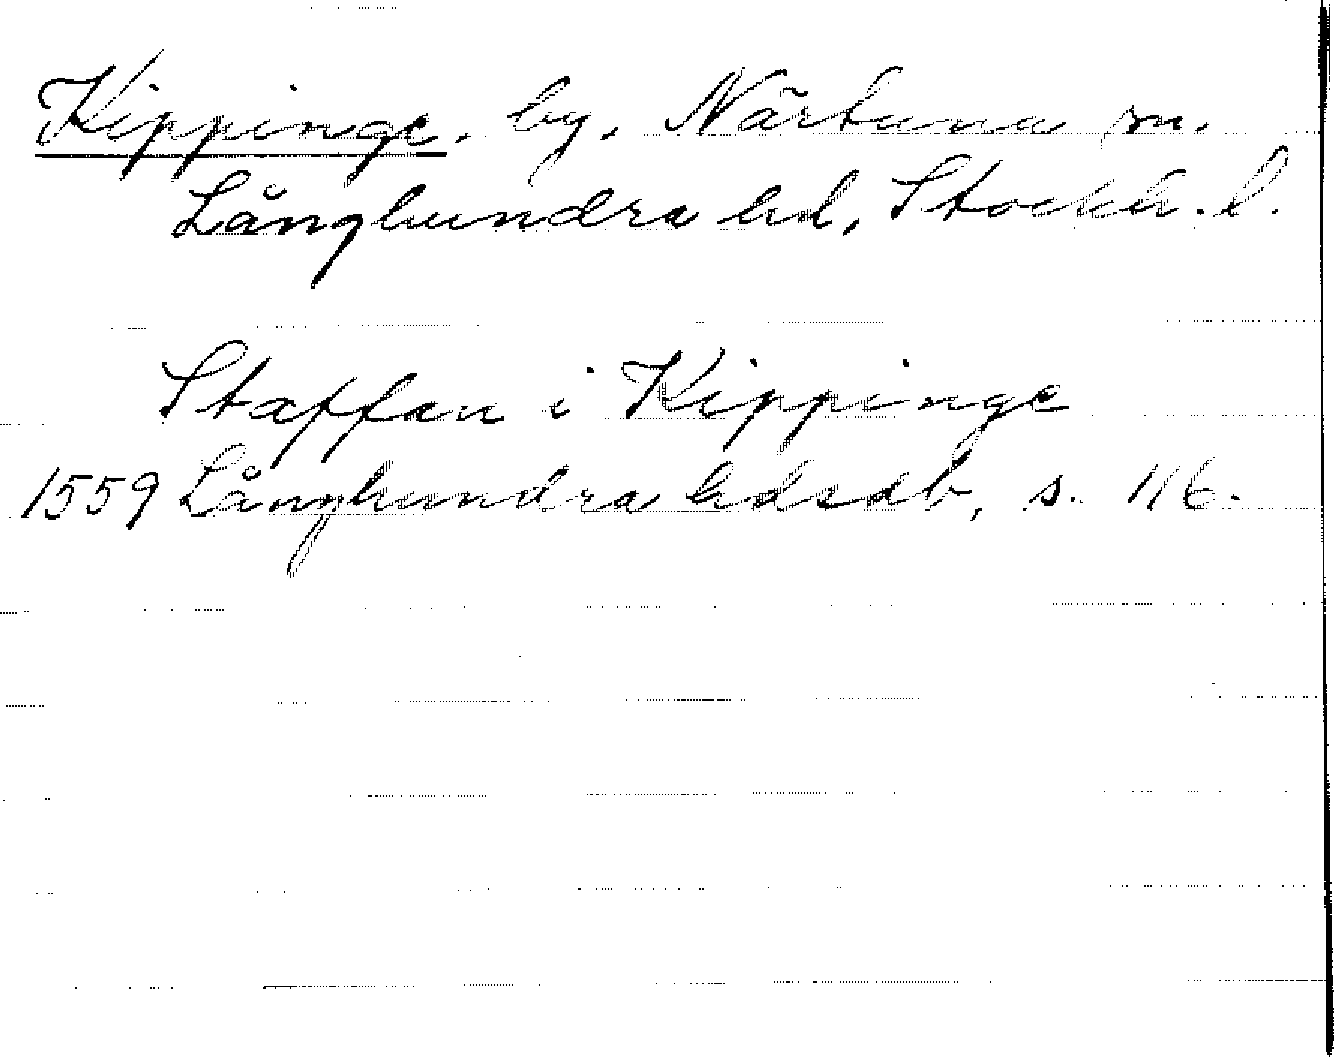 Kippinge. by. Närtuna sn.
Långhundra hd, Stockh. l.
Staffan i Kippinge
1559 Långhundra hdsdb, s. 116.